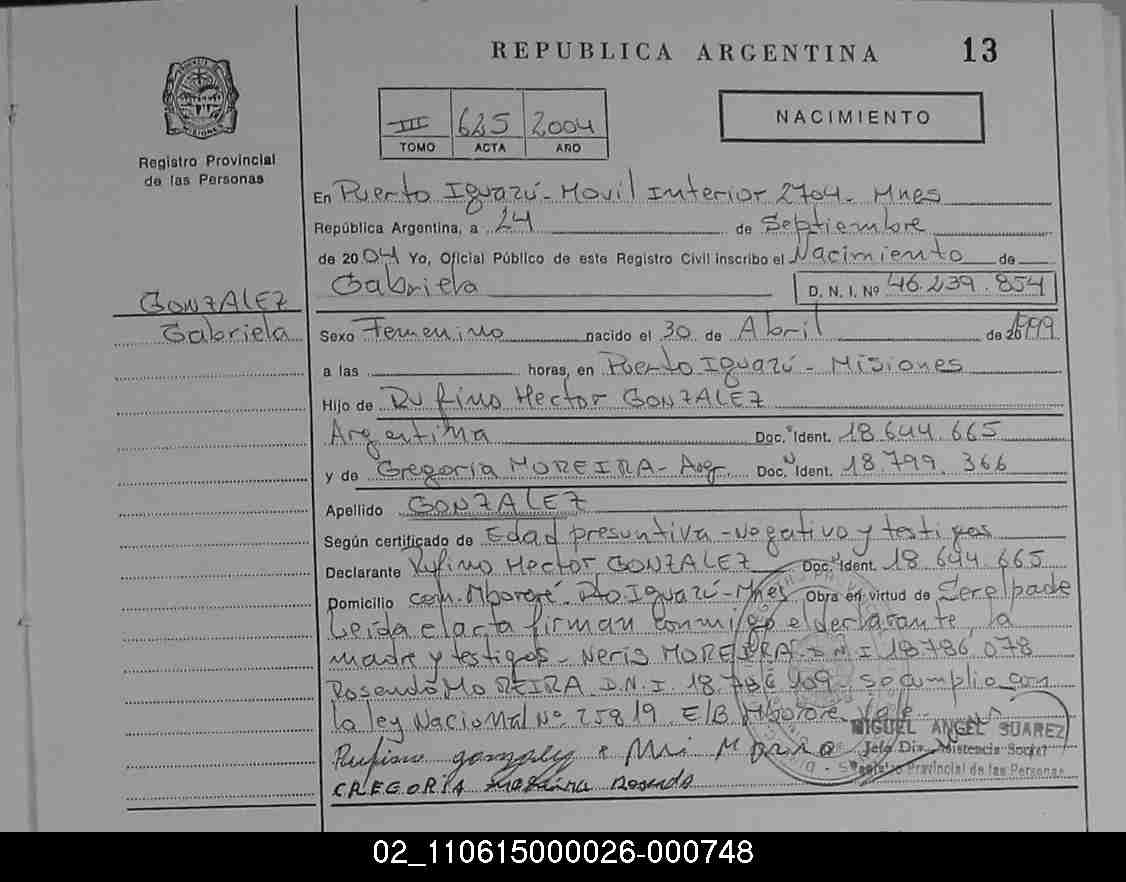 REPUBLICA ARGENTINA 13
III 625 2004
TOMO ACTA AÑO
NACIMIENTO
Registro Provincial
de las Personas
En Puerto Iguazú - Movil Interior 2704 - Mnes
República Argentina, a 24 de Septiembre
de 2004 Yo, Oficial Público de este Registro Civil inscribo el Nacimiento de
Gabriela D. N. I. Nº 46.239.854
GONZALEZ
Gabriela
Sexo Femenino nacido el 30 de Abril de 1999
a las horas, en Puerto Iguazú - Misiones
Hijo de Rufino Hector GONZALEZ
Argentina Doc. Ident. 18.644.665
y de Gregoria MOREIRA - Arg. Doc. Ident. 18.799.366
Apellido GONZALEZ
Según certificado de Edad presuntiva - Negativo y testigos
Declarante Rufino Hector GONZALEZ Doc. Ident. 18.644.665
Domicilio com. Mbororé. Pto Iguazú - Mnes Obra en virtud de Ser el padre
Leída el acta firman conmigo el declarante, la
madre y testigos - Neris MOREIRA D.N.I 18.786.078
Rosendo MOREIRA D.N.I. 18.786.909 se cumplio con
la ley Nacional Nº 25819 E/B Mbororé Vale
MIGUEL ANGEL SUAREZ
Jefe Div. Asistencia Social
Registro Provincial de las Personas
Rufino
GREGORIA Rosendo
02_110615000026-000748